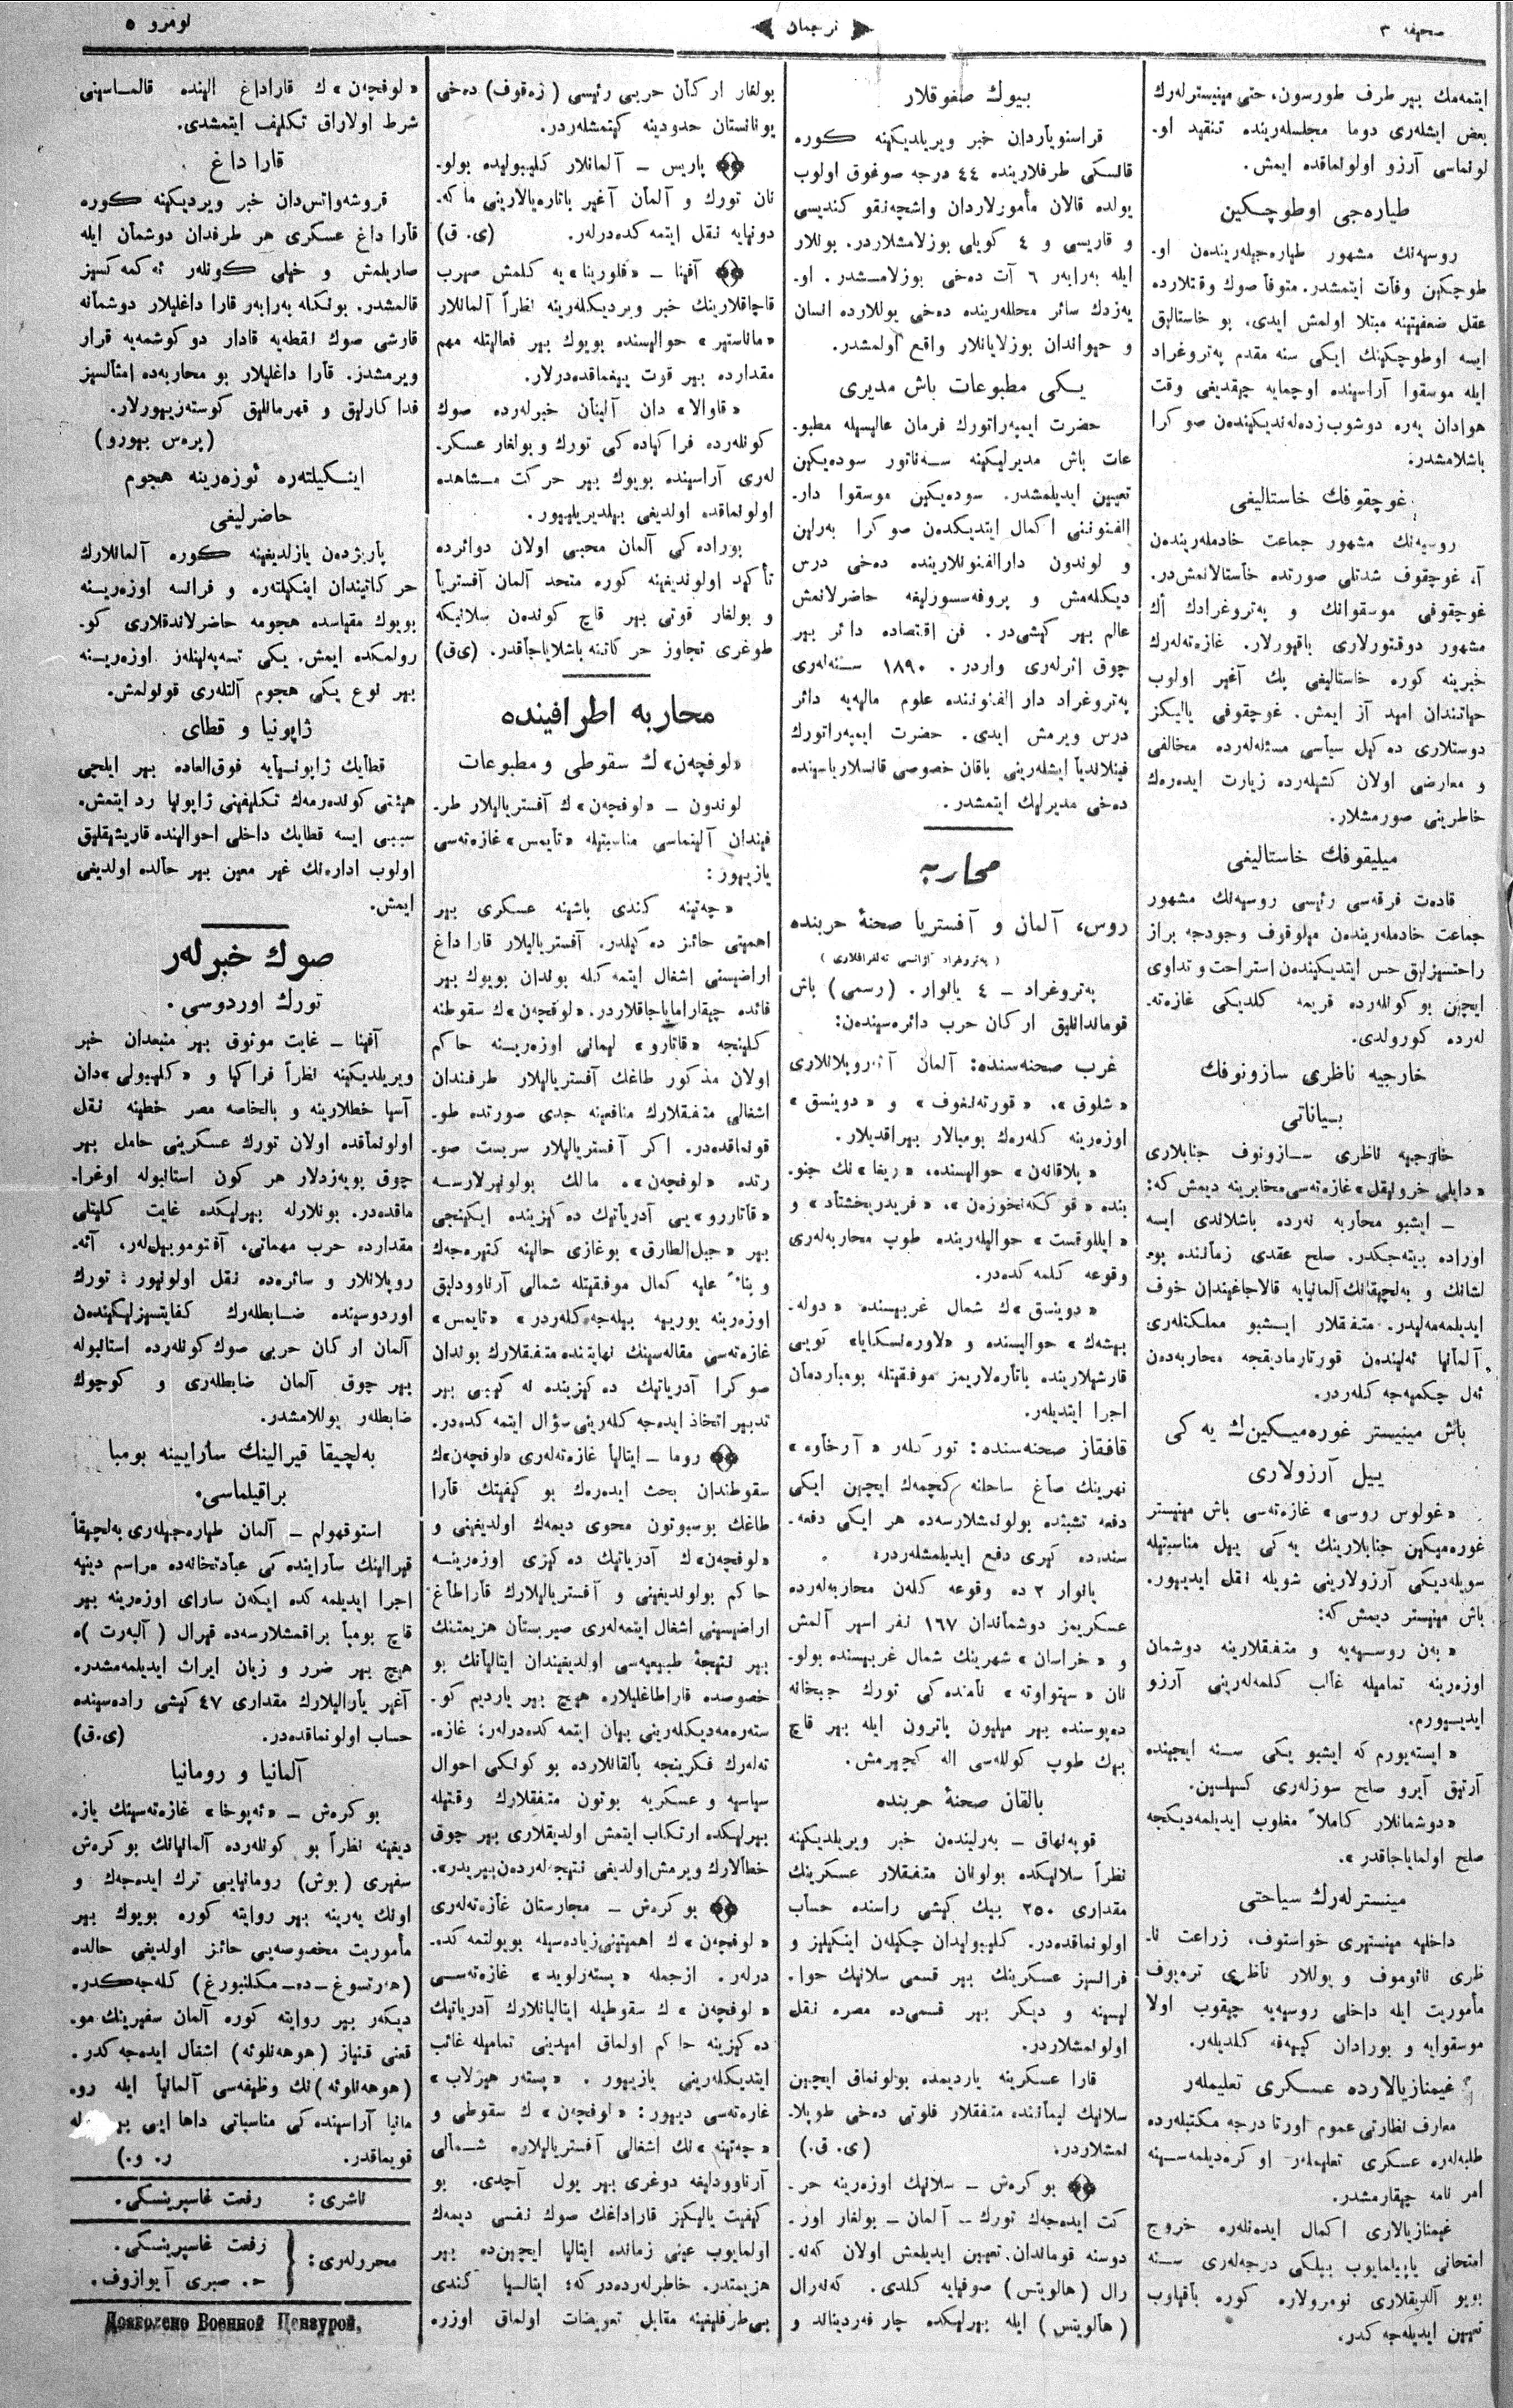 صحیفه ٣
ترجمان
نومرو ٥
ایتمه‌مك بیر طرف طورسون، حتی مینیسترله‌رك
بعض ایشله‌ری دوما مجلسله‌رینده تنقید او-
لونماسی آرزو اولونماقده ایمش.
طیاره‌جی اوطوچكین
روسیه‌نك مشهور طیاره‌جیله‌ریندن او-
طوچكین وفات ایتمشدر. متوفا صوك وقتلارده
عقل ضعفیتینه مبتلا اولمش ایدی. بو خاستالیق
ایسه اوطوچكینك ایكی سنه مقدم په‌تروغراد
ایله موسقوا آراسینده اوچمایه چیقدیغی وقت
هوادان یه‌ره دوشوب زده‌له‌ندیكیندن صوكرا
باشلامشدر.
غوچقوفك خاستالیغی
روسیه‌نك مشهور جماعت خادمله‌ریندن
آ. غوچقوف شدتلی صورتده خاستالانمش‌در.
غوچقوفی موسقوانك و په‌تروغرادك اڭ
مشهور دوقتورلاری باقیورلار. غازه‌ته‌له‌رك
خبرینه كوره خاستالیغی پك آغیر اولوب
حیاتندان امید آز ایمش. غوچقوفی یالیكز
دوستلاری ده كیل سیاسی مسئله‌له‌رده مخالفی
و معارضی اولان كشیله‌رده زیارت ایده‌رك
خاطرینی صورمشلار.
میلیقوفك خاستالیغی
قادەت فرقه‌سی رئیسی روسیه‌نك مشهور
جماعت خادمله‌ریندن میلوقوف وجودجه براز
راحتسیزلیق حس ایتدیكیندن استراحت و تداوی
ایچین بو كونله‌رده قریمه كلدیكی غازه‌ته-
له‌رده كورولدی.
خارجیه ناظری سازونوفك
بیاناتی
خارجیه ناظری سازونوف جنابلاری
«دایلی خرونیقل» غازه‌ته‌سی مخابرینه دیمش كه:
ـ ایشبو محاربه نه‌رده باشلاندی ایسه
اوراده بیته‌جكدر. صلح عقدی زماننده پو-
لشانك و به‌لچیقانك آلمانیایه قالاجاغیندان خوف
ایدیلمه‌مه‌لیدر. متفقلار ایشبو مملكتله‌ری
آلمانیا ئه‌لیندن قورتارمادیقجه محاربه‌دن
ئه‌ل چكمیه‌جه كله‌ردر.
باش مینیستر غوره‌میكین‌ك یه كی
ییل آرزولاری
«غولوس روسی» غازه‌ته‌سی باش مینیستر
غوره‌میكین جنابلارینك یه كی ییل مناسبتیله
سویله‌دیكی آرزولارینی شویله نقل ایدییور.
باش مینیستر دیمش كه:
«بەن روسیه‌یه و متفقلارینه دوشمان
اوزه‌رینه تمامیله غالب كلمه‌له‌رینی آرزو
ایدییورم.
«ایسته‌یورم كه ایشبو یكی سنه ایچینده
آرتیق آیرو صلح سوزله‌ری كسیلسین.
«دوشمانلار كاملاً مغلوب ایدیلمه‌دیكجه
صلح اولمایاجاقدر».
مینسترله‌رك سیاحتی
داخلیه مینستیری خواستوف، زراعت نا-
ظری نائوموف و یوللار ناظری تره‌پوف
مأموریت ایله داخلی روسیه‌یه چیقوب اولا
موسقوایه و بورادان كییه‌فه كلدیله‌ر.
غیمنازیالارده عسكری تعلیمله‌ر
معارف نظارتی عموم اورتا درجه مكتبله‌رده
طلبه‌له‌ره عسكری تعلیمله‌ر اوكره‌دیلمه‌سینه
امر نامه چیقارمشدر.
غیمنازیالاری اكمال ایده‌نله‌ره خروج
امتحانی یاپیلمایوب بیلكی درجه‌له‌ری سنه
بویو آلدیقلاری نومرولاره كوره باقیلوب
تعیین ایدیله‌جه كدر.
بیوك صغوقلار
قراسنویاردان خبر ویریلدیكینه كوره
قانسكی طرفلارینده ٤٤ درجه صوغوق اولوب
یولده قالان مأمورلاردان واشچه‌نقو كندیسی
و قاریسی و ٤ كویلی بوزلامشلاردر. بونلار
ایله به‌رابه‌ر ٦ آت ده‌خی بوزلامشدر. او-
یه‌زدك سائر محلله‌رینده ده‌خی یوللارده انسان
و حیواندان بوزلایانلار واقع اولمشدر.
یكی مطبوعات باش مدیری
حضرت ایمپه‌راتورك فرمان عالیسیله مطبو-
عات باش مدیرلیكینه سه‌ناتور سوده‌یكین
تعیین ایدیلمشدر. سوده‌یكین موسقوا دار-
الفنوننی اكمال ایتدیكدن صوكرا به‌رلین
و لوندون دارالفنونلارینده ده‌خی درس
دیكله‌مش و پروفه‌سسورلیغه حاضرلانمش
عالم بیر كیشی‌در. فن اقتصاده دائر بیر
چوق اثرله‌ری واردر. ١٨٩٠ سنه‌له‌ری
په‌تروغراد دار الفنوننده علوم مالیه‌یه دائر
درس ویرمش ایدی. حضرت ایمپه‌راتورك
فینلاندیا ایشله‌رینی باقان خصوصی قانسلاریاسینده
ده‌خی مدیرلیك ایتمشدر.
محاربه
روس، آلمان و آفستریا صحنهٔ حربنده
(په‌تروغراد آژانسی ته‌لغرافلاری)
په‌تروغراد ـ ٤ یانوار. (رسمی) باش
قوماندانلیق اركان حرب دائره‌سیندن:
غرب صحنه‌سنده: آلمان آئه‌روپلانلاری
«شلوق»، «قورته‌نغوف» و «دوینسق»
اوزه‌رینه كله‌رك بومبالار بیراقدیلار.
«پلاقانه‌ن» حوالیسنده، «ریغا»نك جنو-
بنده «قوككه‌نخوزه‌ن»، «فریدریخشتاد» و
«ایللوقست» حوالیله‌رینده طوپ محاربه‌له‌ری
وقوعه كلمه كده‌در.
«دوینسق»ك شمال غربیسنده «دوله-
یشه‌ك» حوالیسنده و «لاوره‌نسكایا» كویی
قارشیلارینده باتاره‌لاریمز موفقیتله بومباردمان
اجرا ایتدیله‌ر.
قافقاز صحنه‌سنده: توركله‌ر «آرخاوه»
نهرینك صاغ ساحلنه كچمه‌ك ایچین ایكی
دفعه تشبثده بولونمشلارسه‌ده هر ایكی دفعه-
سنده‌ده كیری دفع ایدیلمشله‌ردر.
یانوار ٢ ده وقوعه كله‌ن محاربه‌له‌رده
عسكریمز دوشماندان ١٦٧ نفر اسیر آلمش
و «خراسان» شهرینك شمال غربیسنده بولو-
نان «سیتواوته» نامنده‌كی تورك جبخانه
ده‌پوسنده بیر میلیون پاترون ایله بیر قاچ
بیك طوپ كولله‌سی اله كچیرمش.
بالقان صحنهٔ حربنده
قوپه‌نهاق ـ به‌رلیندن خبر ویریلدیكینه
نظراً سلانیكده بولونان متفقلار عسكرینك
مقداری ٢٥٠ بیك كیشی راسنده حساب
اولونماقده‌در. كلیبولیدان چكیله‌ن اینكلیز و
فرانسیز عسكرینك بیر قسمی سلانیك حوا-
لیسینه و دیكر بیر قسمی‌ده مصره نقل
اولونمشلاردر.
قارا عسكرینه یاردیمده بولونماق ایچین
سلانیك لیماننده متفقلار فلوتی ده‌خی طوپلا-
نمشلاردر. (ی. ق.)
بوكره‌ش ـ سلانیك اوزه‌رینه حر-
كت ایده‌جه‌ك تورك ـ آلمان ـ بولغار اور-
دوسنه قوماندان تعیین ایدیلمش اولان كه‌نه-
رال (هالویتس) صوفیایه كلدی. كه‌نه‌رال
(هالویتس) ایله بیرلیكده چار فه‌ردیناند و
بولغار اركان حربی رئیسی (ژه‌قوف) ده‌خی
یونانستان حدودینه كیتمشله‌ردر.
پاریس ـ آلمانلار كلیبولیده بولو-
نان تورك و آلمان آغیر باتاره‌یالارینی ماكه-
دونیایه نقل ایتمه كده‌درله‌ر. (ی. ق)
آفینا ـ «فلورینا»یه كلمش صیرب
قاچاقلارینك خبر ویردیكله‌رینه نظراً آلمانلار
«ماناستیر» حوالیسنده بویوك بیر فعالیتله مهم
مقدارده بیر قوت ییغماقده‌درلار.
«قاوالا» دان آلینان خبرله‌رده صوك
كونله‌رده فراكیاده كی تورك و بولغار عسكر-
له‌ری آراسینده بویوك بیر حركت مشاهده
اولونماقده اولدیغی بیلدیریلییور.
بوراده كی آلمان محبی اولان دوائرده
تأكید اولوندیغینه كوره متحد آلمان آفستریا
و بولغار قوتی بیر قاچ كونده‌ن سلانیكه
طوغری تجاوز حركاتنه باشلایاجاقدر. (ی‌ق)
محاربه اطرافینده
«لوفچه‌ن»ك سقوطی و مطبوعات
لوندون ـ «لوفچه‌ن»ك آفستریالیلار طر-
فیندان آلینماسی مناسبتیله «تایمس» غازه‌ته‌سی
یازییور:
«چه‌تینه كندی باشینه عسكری بیر
اهمیتی حائز ده كیلدر. آفستریالیلار قارا داغ
اراضیسنی اشغال ایتمه كله بوندان بویوك بیر
فائده چیقارامایاجاقلاردر. «لوفچه‌ن»ك سقوطنه
كلینجه «قاتارو» لیمانی اوزه‌رینه حاكم
اولان مذكور طاغك آفستریالیلار طرفندان
اشغالی متفقلارك منافعینه جدی صورتده طو-
قونماقده‌در. اكر آفستریالیلار سربست صو-
رتده «لوفچه‌ن»ه مالك بولونیرلارسه
«قاتاررو»یی آدریاتیك ده كیزینده ایكینجی
بیر «جبل‌الطارق» بوغازی حالینه كتیره‌جه‌ك
و بناءً علیه كمال موفقیتله شمالی آرناوودلیق
اوزه‌رینه یورییه بیله‌جه كله‌ردر» «تایمس»
غازه‌ته‌سی مقاله‌سینك نهایتنده متفقلارك بوندان
صوكرا آدریاتیك ده كیزینده نه كیبی بیر
تدبیر اتخاذ ایده‌جه كله‌رینی سؤال ایتمه كده‌در.
روما ـ ایتالیا غازه‌ته‌له‌ری «لوفچه‌ن»ك
سقوطندان بحث ایده‌ره‌ك بو كیفیتك قارا
طاغك بوسبوتون محوی دیمه‌ك اولدیغینی و
«لوفچه‌ن»ك آدریاتیك ده كیزی اوزه‌رینه
حاكم بولوندیغینی و آفستریالیلارك قاراطاغ
اراضیسینی اشغال ایتمه‌له‌ری صیربستان هزیمتنك
بیر نتیجهٔ طبیعیه‌سی اولدیغیندان ایتالیانك بو
خصوصده قاراطاغلیلاره هیچ بیر یاردیم كو-
ستره‌مه‌دیكله‌رینی بیان ایتمه كده‌درله‌ر: غازه-
ته‌له‌رك فكرینجه بالقانلارده بو كونكی احوال
سیاسیه و عسكریه بوتون متفقلارك وقتیله
بیرلیكده ارتكاب ایتمش اولدیقلاری بیر چوق
خطالارك ویرمش‌اولدیغی نتیجه‌له‌رده‌ن‌بیریدر».
بوكره‌ش ـ مجارستان غازه‌ته‌له‌ری
«لوفچه‌ن»ك اهمیتینی زیاده‌سیله بویولتمه كده-
درله‌ر. ازجمله «پسته‌رلوید» غازه‌ته‌سی
«لوفچه‌ن»ك سقوطیله ایتالیانلارك آدریاتیك
ده كیزینه حاكم اولماق امیدینی تمامیله غائب
ایتدیكله‌رینی یازییور. «پسته‌ر هیرلاب»
غازه‌ته‌سی دییور: «لوفچه‌ن»ك سقوطی و
«چه‌تینه»نك اشغالی آفستریالیلاره شمالی
آرناوودلیغه دوغری بیر یول آچدی. بو
كیفیت یالیكیز قاراداغك صوك نفسی دیمه‌ك
اولمایوب عینی زمانده ایتالیا ایچین‌ده بیر
هزیمتدر. خاطرله‌رده‌در كه؛ ایتالیا كندی
بی‌طرفلیغینه مقابل تعویضات اولماق اوزره
«لوفچه‌ن»ك قاراداغ الینده قالماسینی
شرط اولاراق تكلیف ایتمشدی.
قارا داغ
قروشه‌واتس‌دان خبر ویردیكینه كوره
قارا داغ عسكری هر طرفدان دوشمان ایله
صاریلمش و خیلی كونله‌ر ئه‌كمه كسیز
قالمشدر. بونكله به‌رابه‌ر قارا داغلیلار دوشمانه
قارشی صوك نقطه‌یه قادار دوكوشمه‌یه قرار
ویرمشدز. قارا داغلیلار بو محاربه‌ده امثالسیز
فداكارلیق و قهرمانلیق كوسته‌زییورلار.
(پره‌س بیورو)
اینكیلته‌ره ئوزه‌رینه هجوم
حاضرلیغی
پاریژدن یازلدیغینه كوره آلمانلارك
حركاتیندان اینكیلته‌ره و فرانسه اوزه‌رینه
بویوك مقیاسده هجومه حاضرلاندقلاری كو-
رولمكده ایمش. یكی تسه‌په‌لینله‌ز اوزه‌رینه
بیر نوع یكی هجوم آلتله‌ری قونولمش.
ژاپونیا و قطای
قطایك ژاپونیایه فوق‌العاده بیر ایلچی
هیئتی كونده‌رمه‌ك تكلیفینی ژاپونیا رد ایتمش.
سببی ایسه قطایك داخلی احوالینده قاریشیقلیق
اولوب اداره‌نك غیر معین بیر حالده اولدیغی
ایمش.
صوك خبرله‌ر
تورك اوردوسی.
آفینا ـ غایت موثوق بیر منبعدان خبر
ویریلدیكینه نظراً فراكیا و «كلیبولی»دان
آسیا خطلارینه و بالخاصه مصر خطینه نقل
اولونماقده اولان تورك عسكرینی حامل بیر
چوق پویه‌زدلار هر كون استانبوله اوغرا-
ماقده‌در. بونلارله بیرلیكده غایت كلیتلی
مقدارده حرب مهماتی، آفتوموبیل‌له‌ر، آئه-
روپلانلار و سائره‌ده نقل اولونیور: تورك
اوردوسینده ضابطله‌رك كفایتسیزلیكیندن
آلمان اركان حربی صوك كونله‌رده استانبوله
بیر چوق آلمان ضابطله‌ری و كوچوك
ضابطله‌ر یوللامشدر.
به‌لچیقا قیرالینك سارایینه بومبا
براقیلماسی.
استوقهولم ـ آلمان طیاره‌جیله‌ری به‌لچیقا
قیرالینك سارایندە كی عبادتخانه‌ده مراسم دینیه
اجرا ایدیلمه كده ایكه‌ن سارای اوزه‌رینه بیر
قاچ بومبا براقمشلارسه‌ده قیرال (آلبه‌رت)ه
هیچ بیر ضرر و زیان ایراث ایدیلمه‌مشدر.
آغیر یارالیلارك مقداری ٤٧ كیشی راده‌سینده
حساب اولونماقده‌در. (ی.ق)
آلمانیا و رومانیا
بوكره‌ش ـ «ئه‌پوخا» غازه‌ته‌سینك یاز-
دیغینه نظراً بو كونله‌رده آلمانیانك بوكره‌ش
سفیری (بوش) رومانیایی ترك ایده‌جه‌ك و
اونك یه‌رینه بیر روایته كوره بویوك بیر
مأموریت مخصوصه‌یی حائز اولدیغی حالده
(هه‌رتسوغ ـ ده ـ مكلنبورغ) كله‌جه‌كدر.
دیكه‌ر بیر روایته كوره آلمان سفیرینك مو-
قعنی قنیاز (هوهه‌نلوئه) اشغال ایده‌جه كدر.
(هوهه‌نلوئه)نك وظیفه‌سی آلمانیا ایله رو-
مانیا آراسینده كی مناسباتی داها ایی
قویماقدر. ر. و.)
ناشری: رفعت غاسپرینسكی.
محررله‌ری: { رفعت غاسپرینسكی.
ح. صبری آیوازوف.
Дозволено Военной Цензурой,